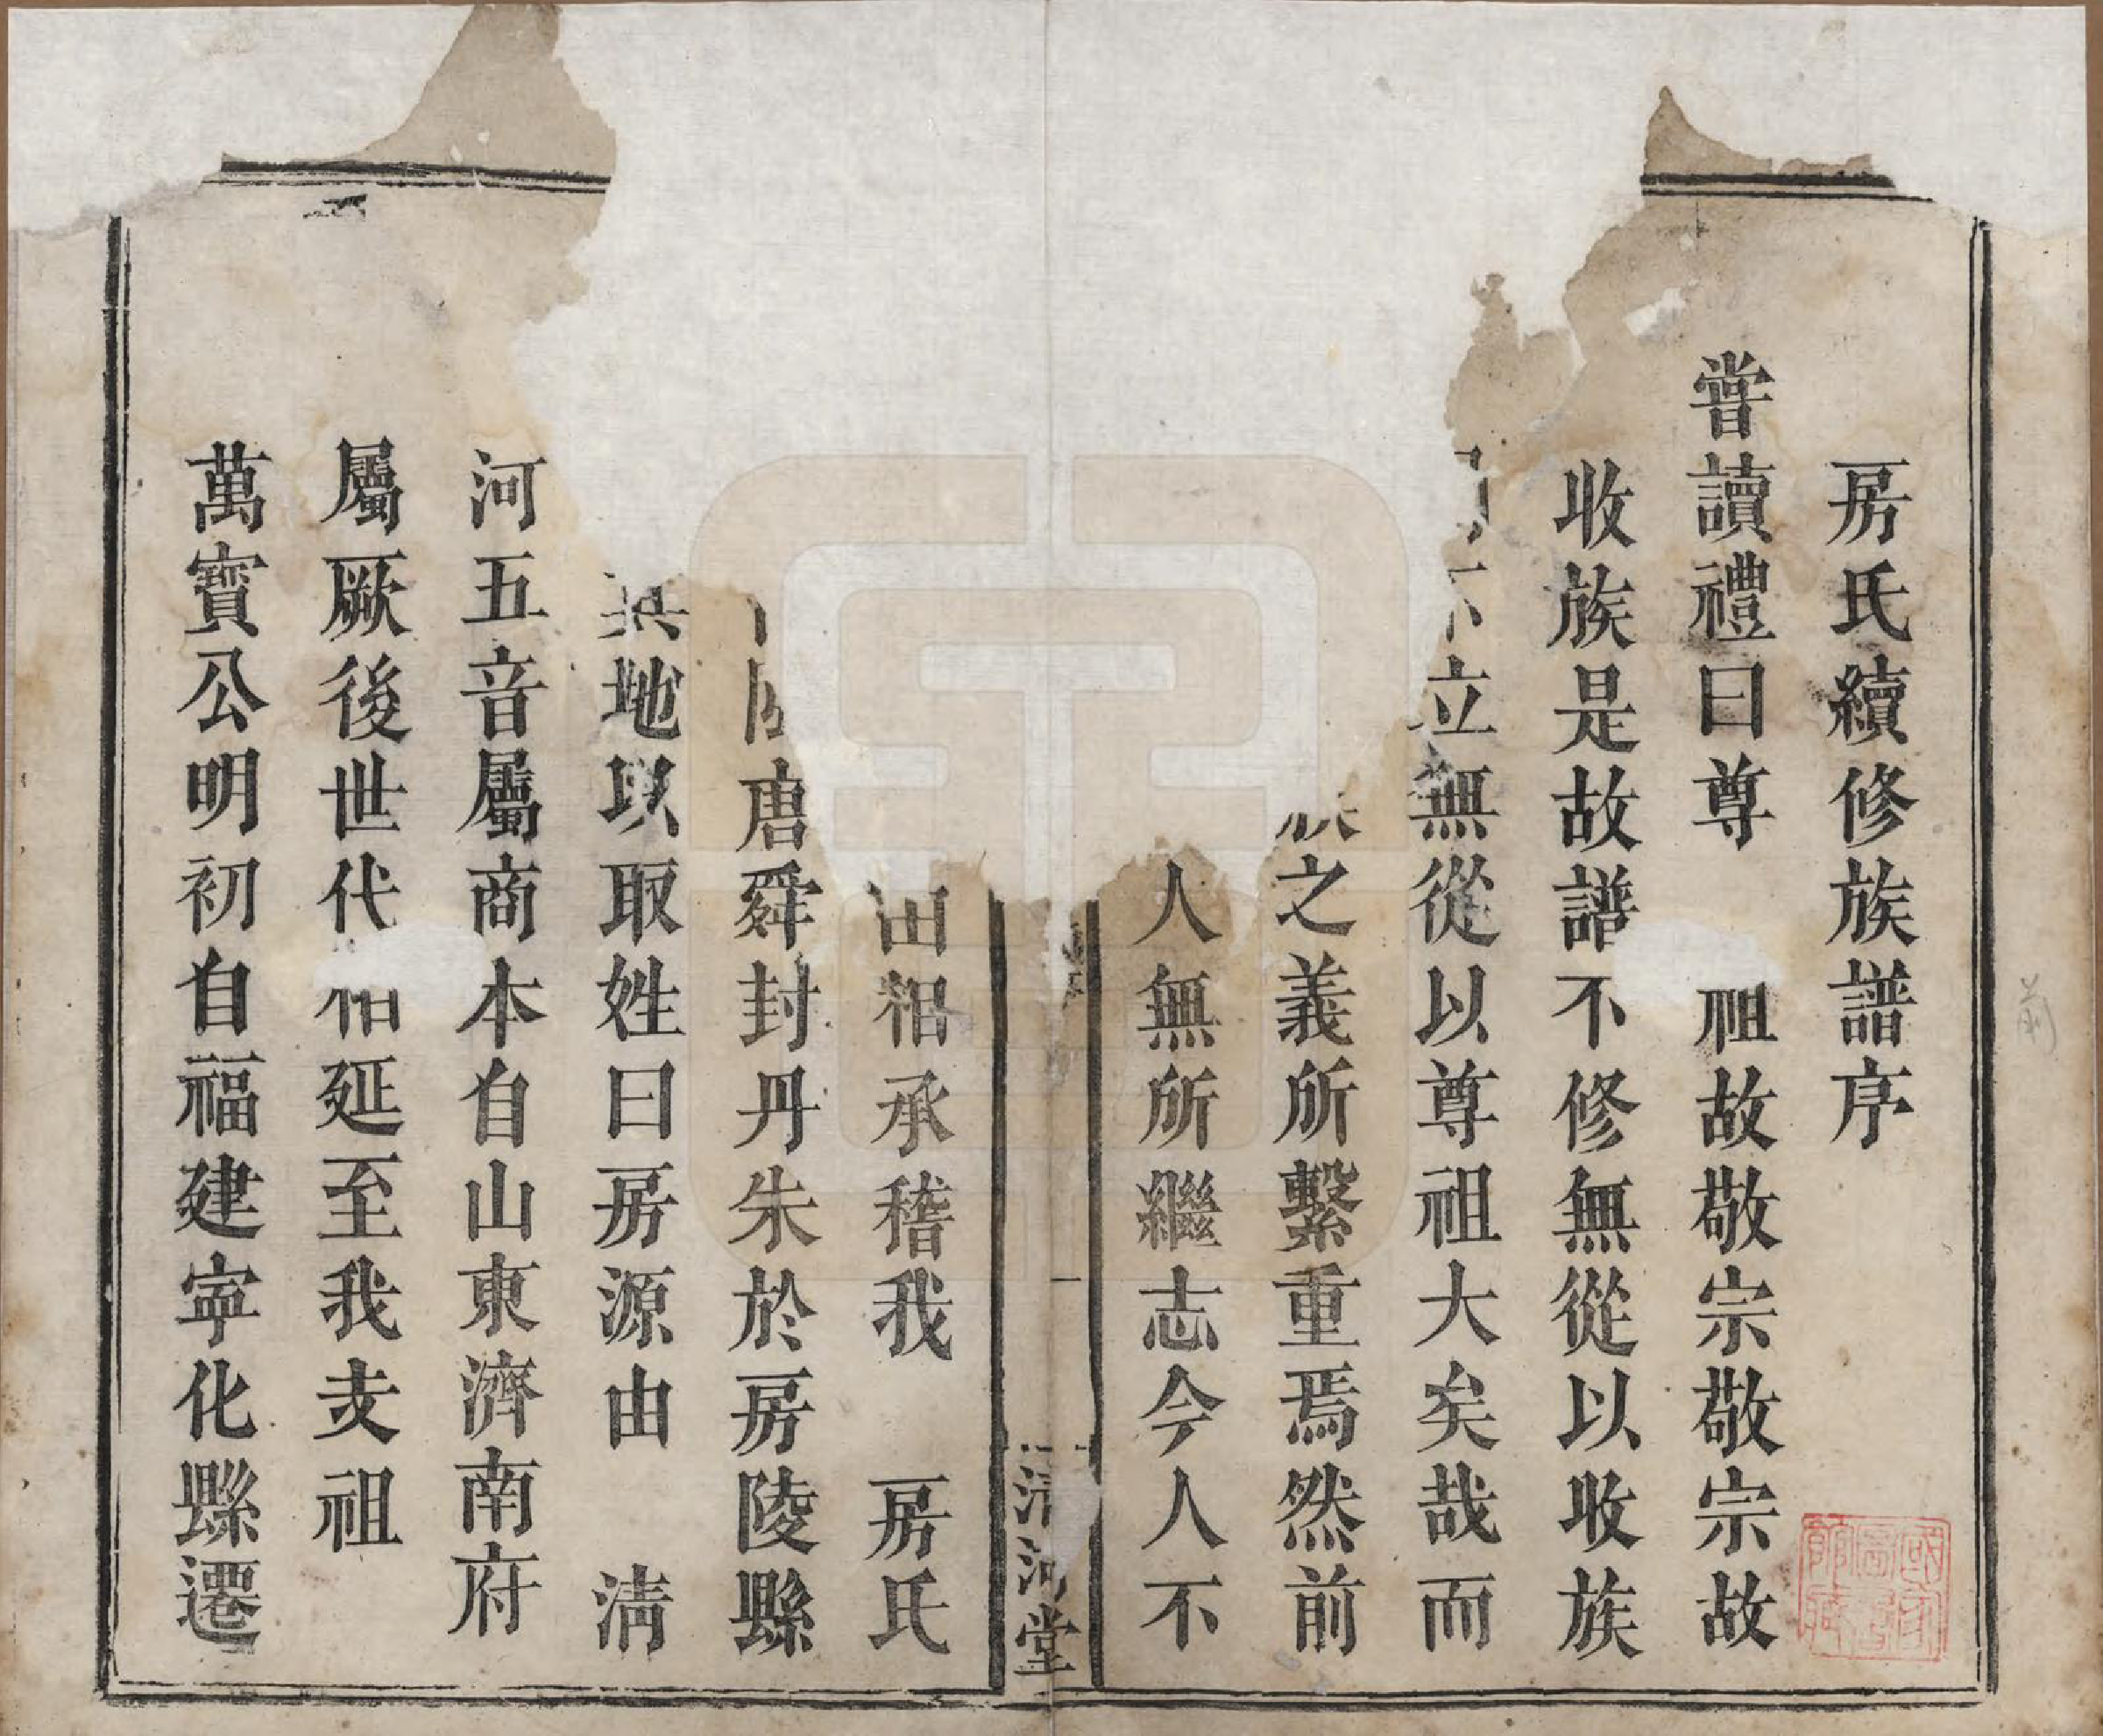 房氏續修族譜序
嘗讀禮曰尊 祖故敬宗敬宗故
收族是故譜不修無從以收族
不立無從以尊祖大矣哉而
族之義所繫重焉然前
人無所繼志今人不
清河堂
由相承稽我 房氏
唐舜封丹朱於房陵縣
其地以取姓曰房源由 清
河五音屬商本自山東濟南府
屬厥後世代相延至我叐祖
萬寶公明初自福建寕化縣遷
國家圖書館藏
前